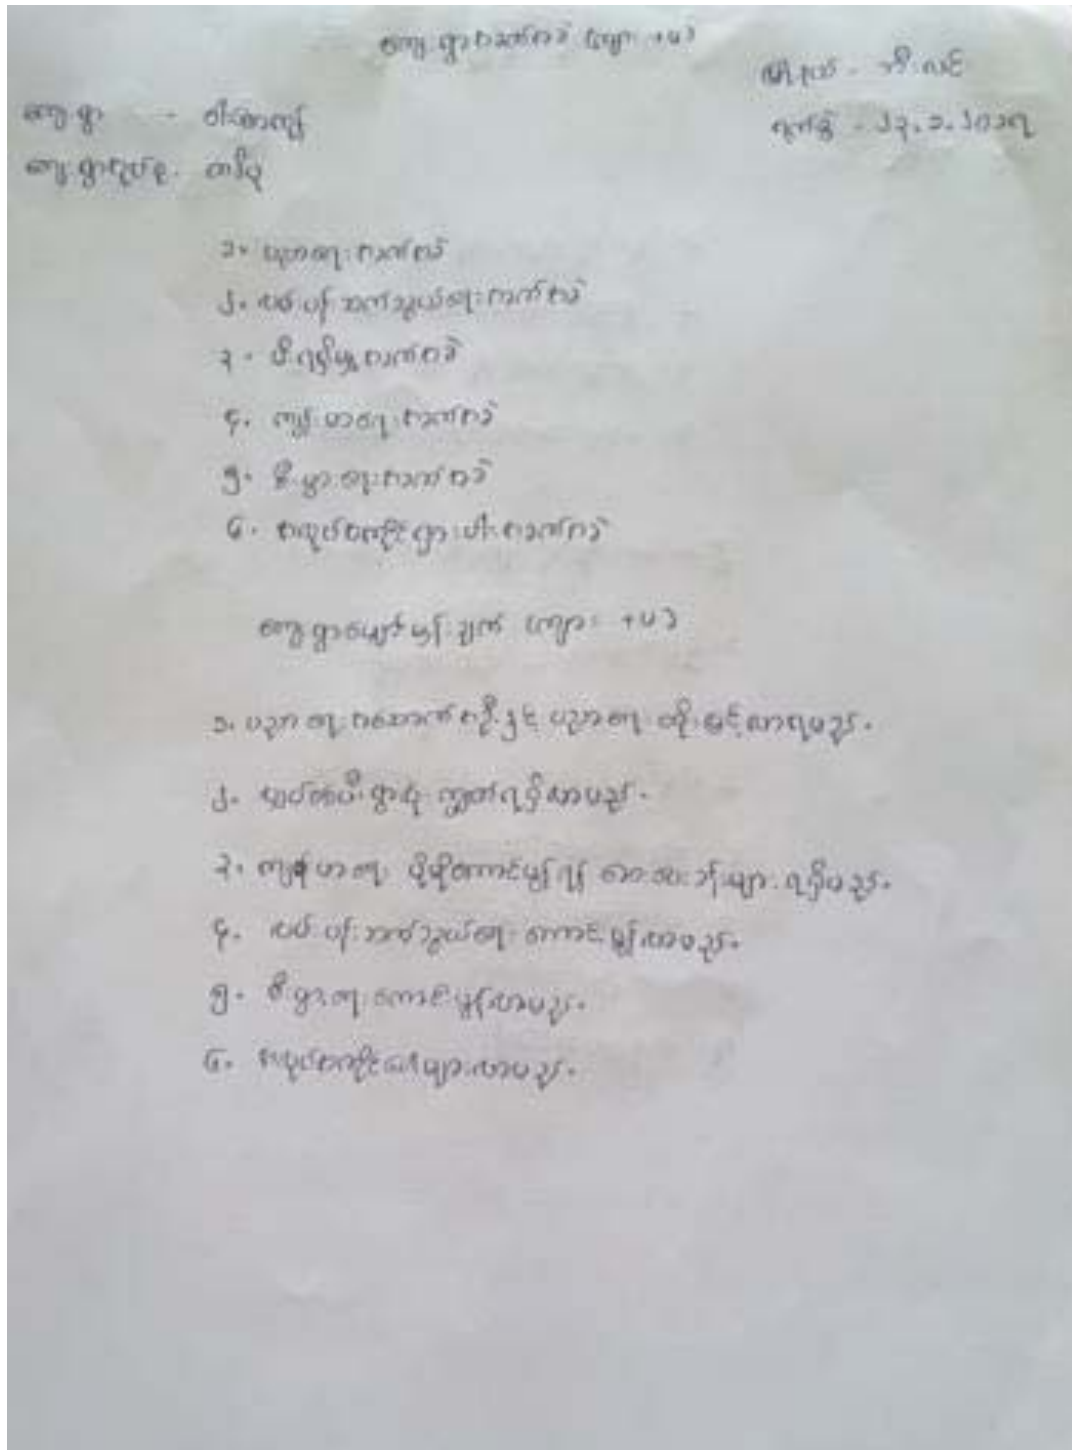 ကျေးရွာအခက်အခဲ (ကျား + မ)
မြို့နယ် - ဘီးလင်း
ကျေးရွာ - ဝါးတောကျွန်း
ရက်စွဲ - ၂၃.၁.၂၀၁၅
ကျေးရွာအုပ်စု -
၁. ပညာရေးအခက်အခဲ
၂. လမ်းပန်းဆက်သွယ်ရေးအခက်အခဲ
၃. မီးရရှိမှုအခက်အခဲ
၄. ကျန်းမာရေးအခက်အခဲ
၅. စီးပွားရေးအခက်အခဲ
၆. အလုပ်အကိုင်ရှားပါးအခက်အခဲ
ကျေးရွာမျှော်မှန်းချက် (ကျား + မ)
၁. ပညာရေးအဆောက်အဦးနှင့် ပညာရေးတိုးမြှင့်လာရမည်။
၂. လျှပ်စစ်မီး ရရှိလာမည်။
၃. ကျန်းမာရေး ပိုမိုကောင်းမွန်ရန် ဆေးပေးခန်းများ ရရှိမည်။
၄. လမ်းပန်းဆက်သွယ်ရေး ကောင်းမွန်လာမည်။
၅. စီးပွားရေးကောင်းမွန်လာမည်။
၆. အလုပ်အကိုင်ပေါများလာမည်။